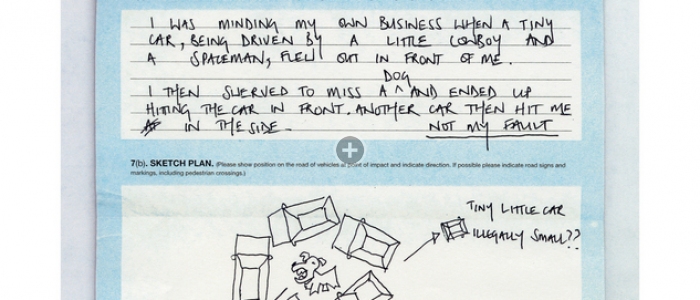 I WAS MINDING MY OWN BUSINESS WHEN A TINY
CAR, BEING DRIVEN BY A LITTLE COWBOY AND
A SPACEMAN, FLEW OUT IN FRONT OF ME.
DOG
I THEN SWERVED TO MISS A ^ AND ENDED UP
HITTING THE CAR IN FRONT. ANOTHER CAR THEN HIT ME
IN THE SIDE. NOT MY FAULT
7(b). SKETCH PLAN. (Please show position on the road of vehicles at point of impact and indicate direction. If possible please indicate road signs and
markings, including pedestrian crossings.)
TINY LITTLE CAR
ILLEGALLY SMALL??